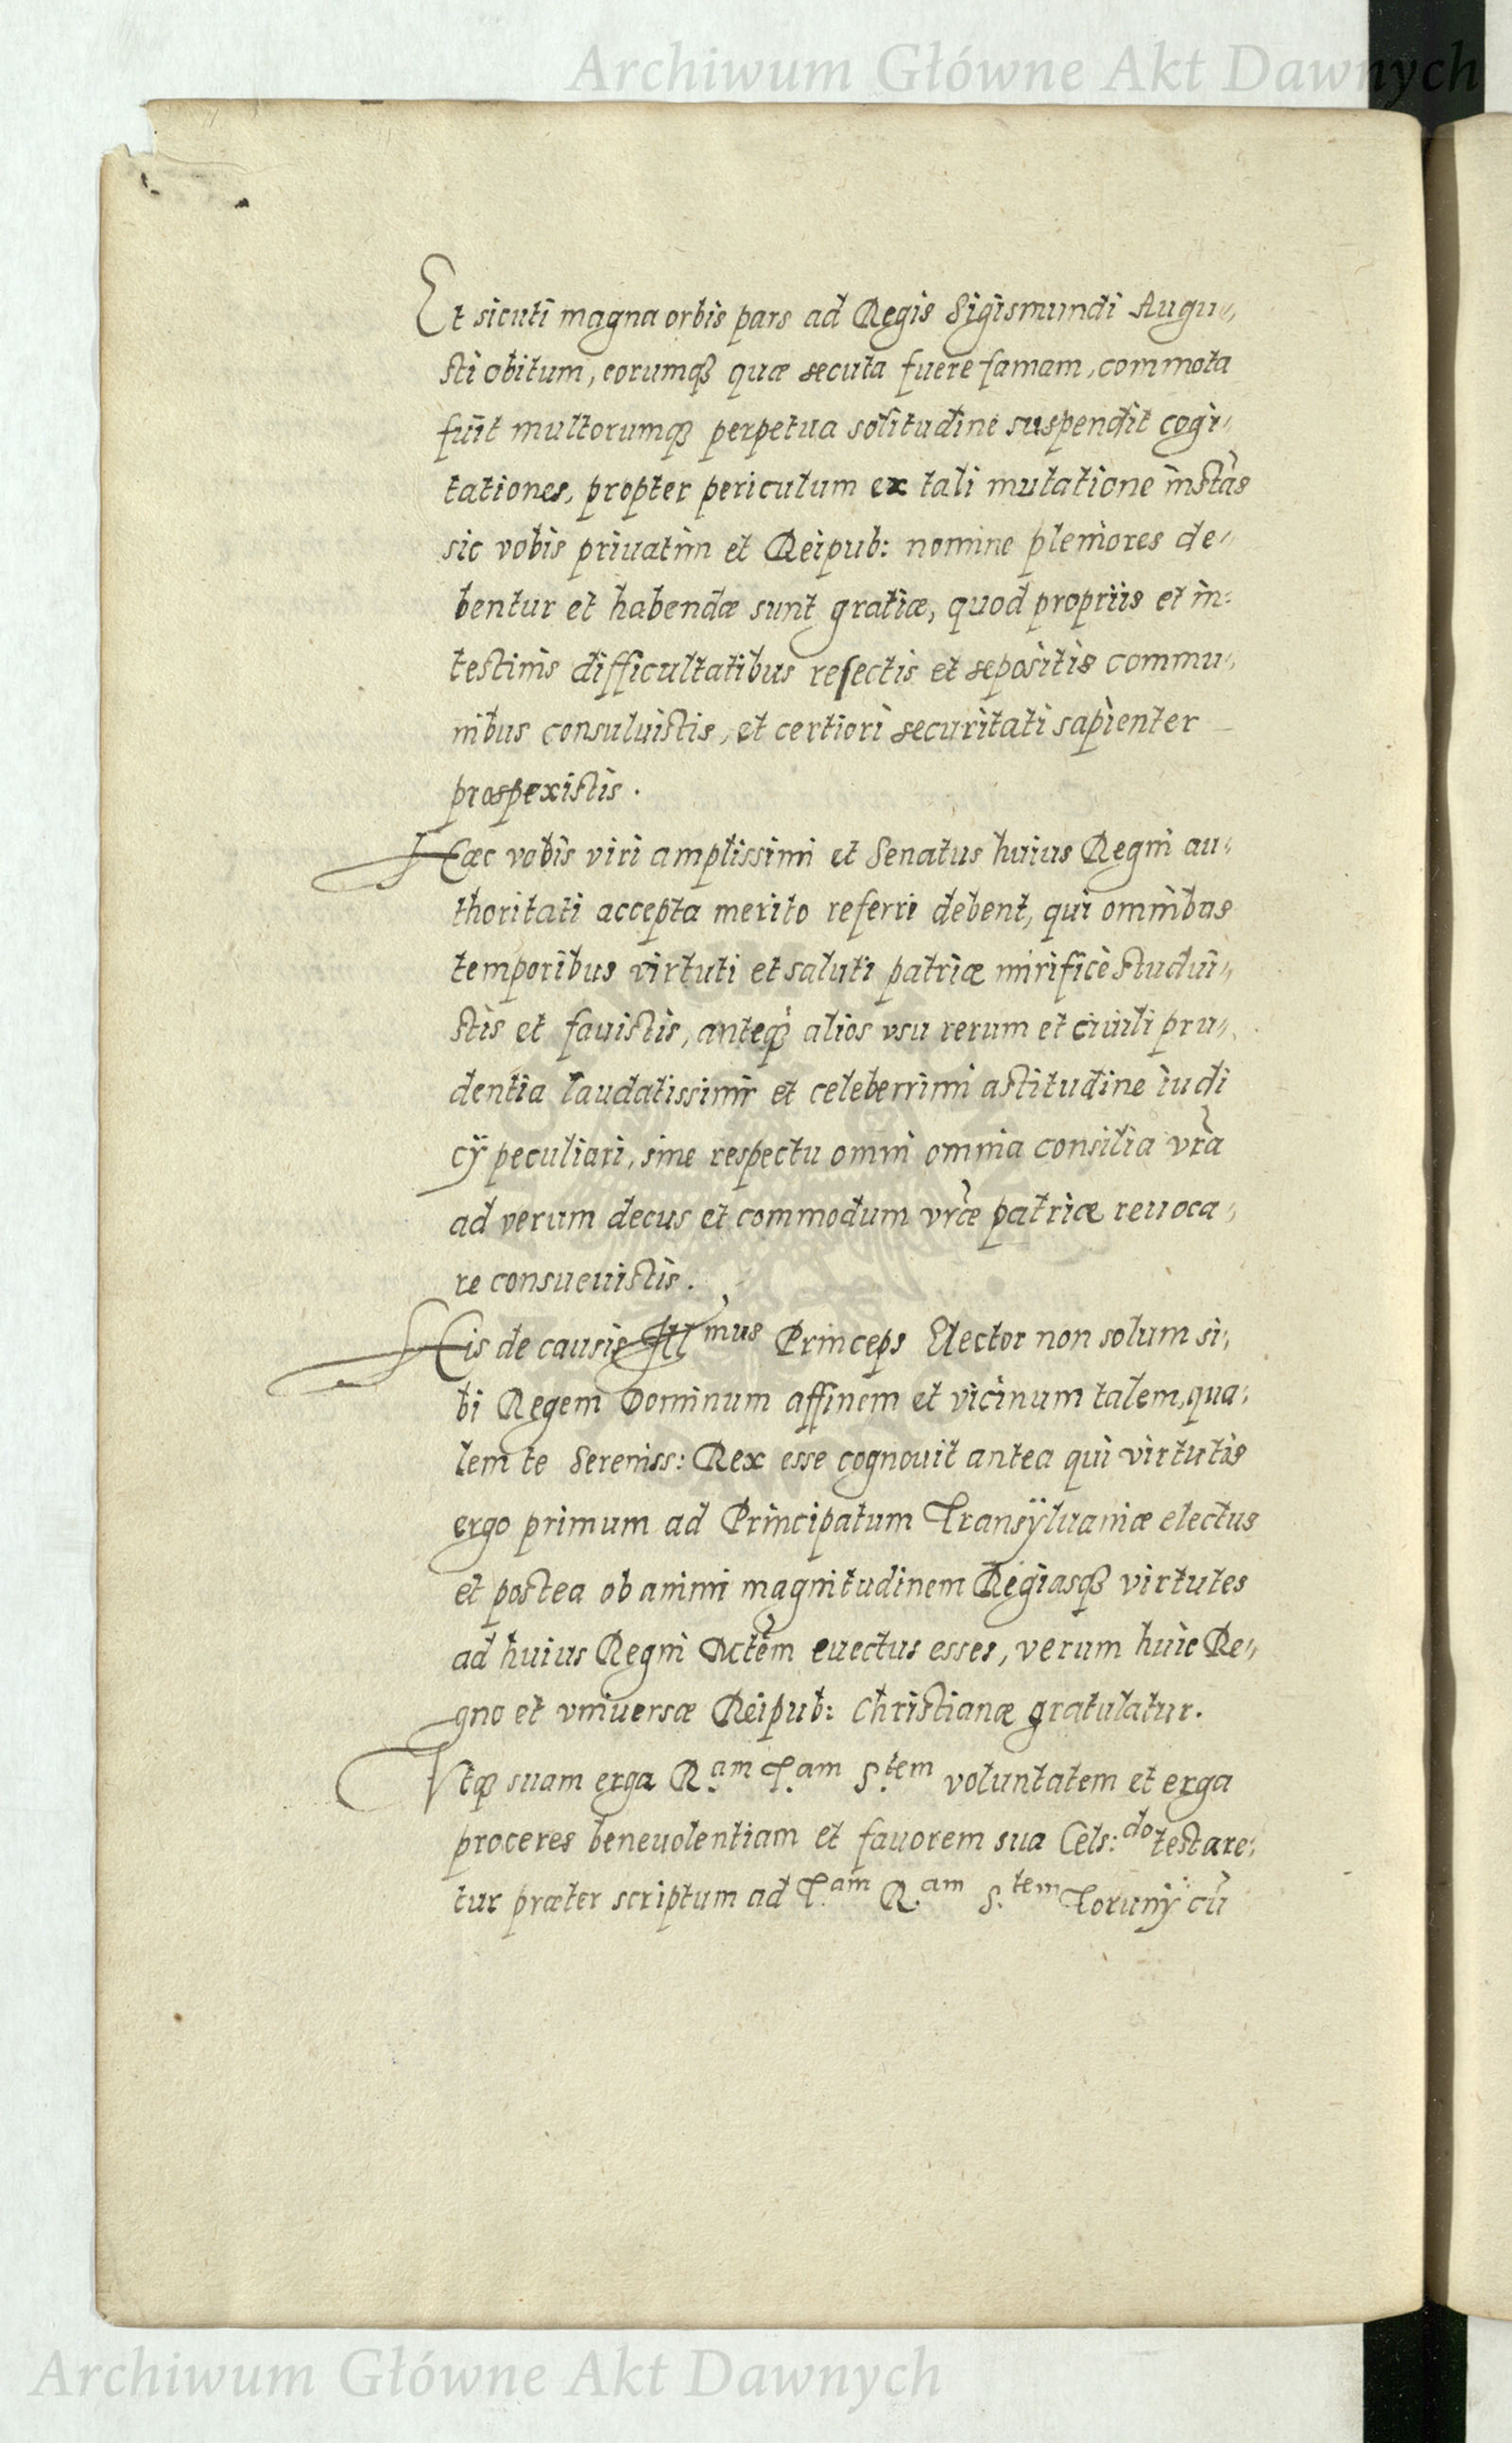 Archiwum Główne Akt Dawnych
Et sicuti magna orbis pars ad Regis Sigismundi Augu„
sti obitum, eorumqꝫ quæ secuta fuere famam, commota
fuit multorumqꝫ perpetua solitudine suspendit cogi„
tationes, propter periculum ex tali mutatione instãs
sic vobis priuatim et Reipub: nomine pleniores de„
bentur et habendæ sunt gratiæ, quod propriis et in:
testinis difficultatibus resectis et sepositis commu„
nibus consuluistis, et certiori securitati sapienter
prospexistis.
Hæc vobis viri amplissimi et Senatus huius Regni au„
thoritati accepta merito referri debent, qui omnibus
temporibus virtuti et saluti patriæ mirificè studui„
stis et fauistis, anteqꝫ alios vsu rerum et ciuili pru„
dentia laudatissimi et celeberrimi astitudine iudi
cÿ peculiari, sine respectu omni omnia consilia vr̃a
ad verum decus et commodum vr̃æ patriæ reuoca„
re consueuistis.
His de causis Illmus Princeps Elector non solum si„
bi Regem Dominum affinem et vicinum talem, qua„
lem te Sereniss: Rex esse cognouit antea qui virtutis
ergo primum ad Principatum Transÿluaniæ electus
et postea ob animi magnitudinem Regiasqꝫ virtutes
ad huius Regni Mctẽm euectus esses, verum huic Re„
gno et vniuersæ Reipub: Christianæ gratulatur.
Vtqꝫ suam erga R.am T.am S.tem voluntatem et erga
proceres beneuolentiam et fauorem sua Cels:do testare„
tur præter scriptum ad T.am R.am S.tem Torunÿ cũ
Archiwum Główne Akt Dawnych